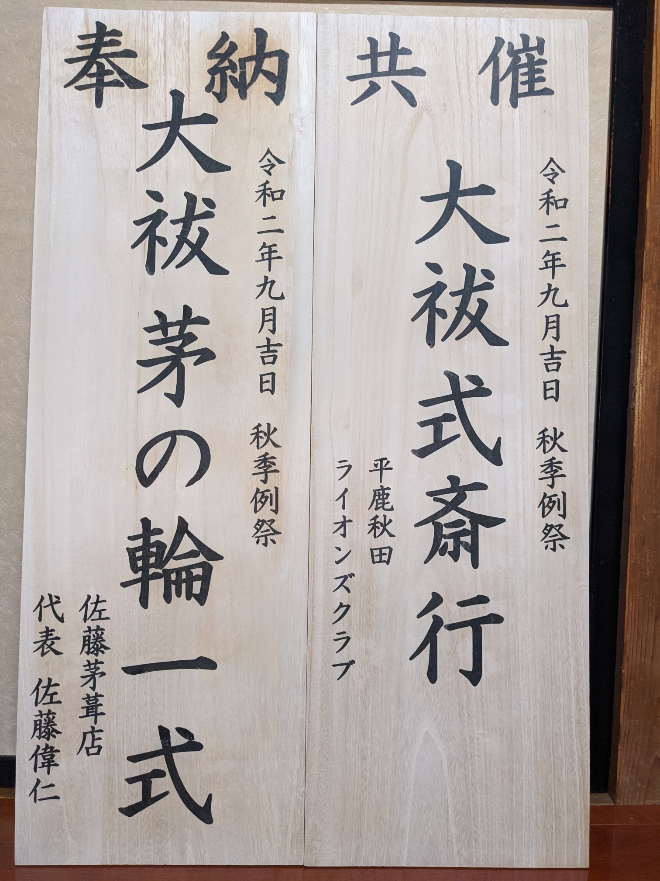 共催
令和二年九月吉日　秋季例祭
大祓式斎行
平鹿秋田
ライオンズクラブ
奉納
令和二年九月吉日　秋季例祭
大祓茅の輪一式
佐藤茅葺店
代表　佐藤偉仁